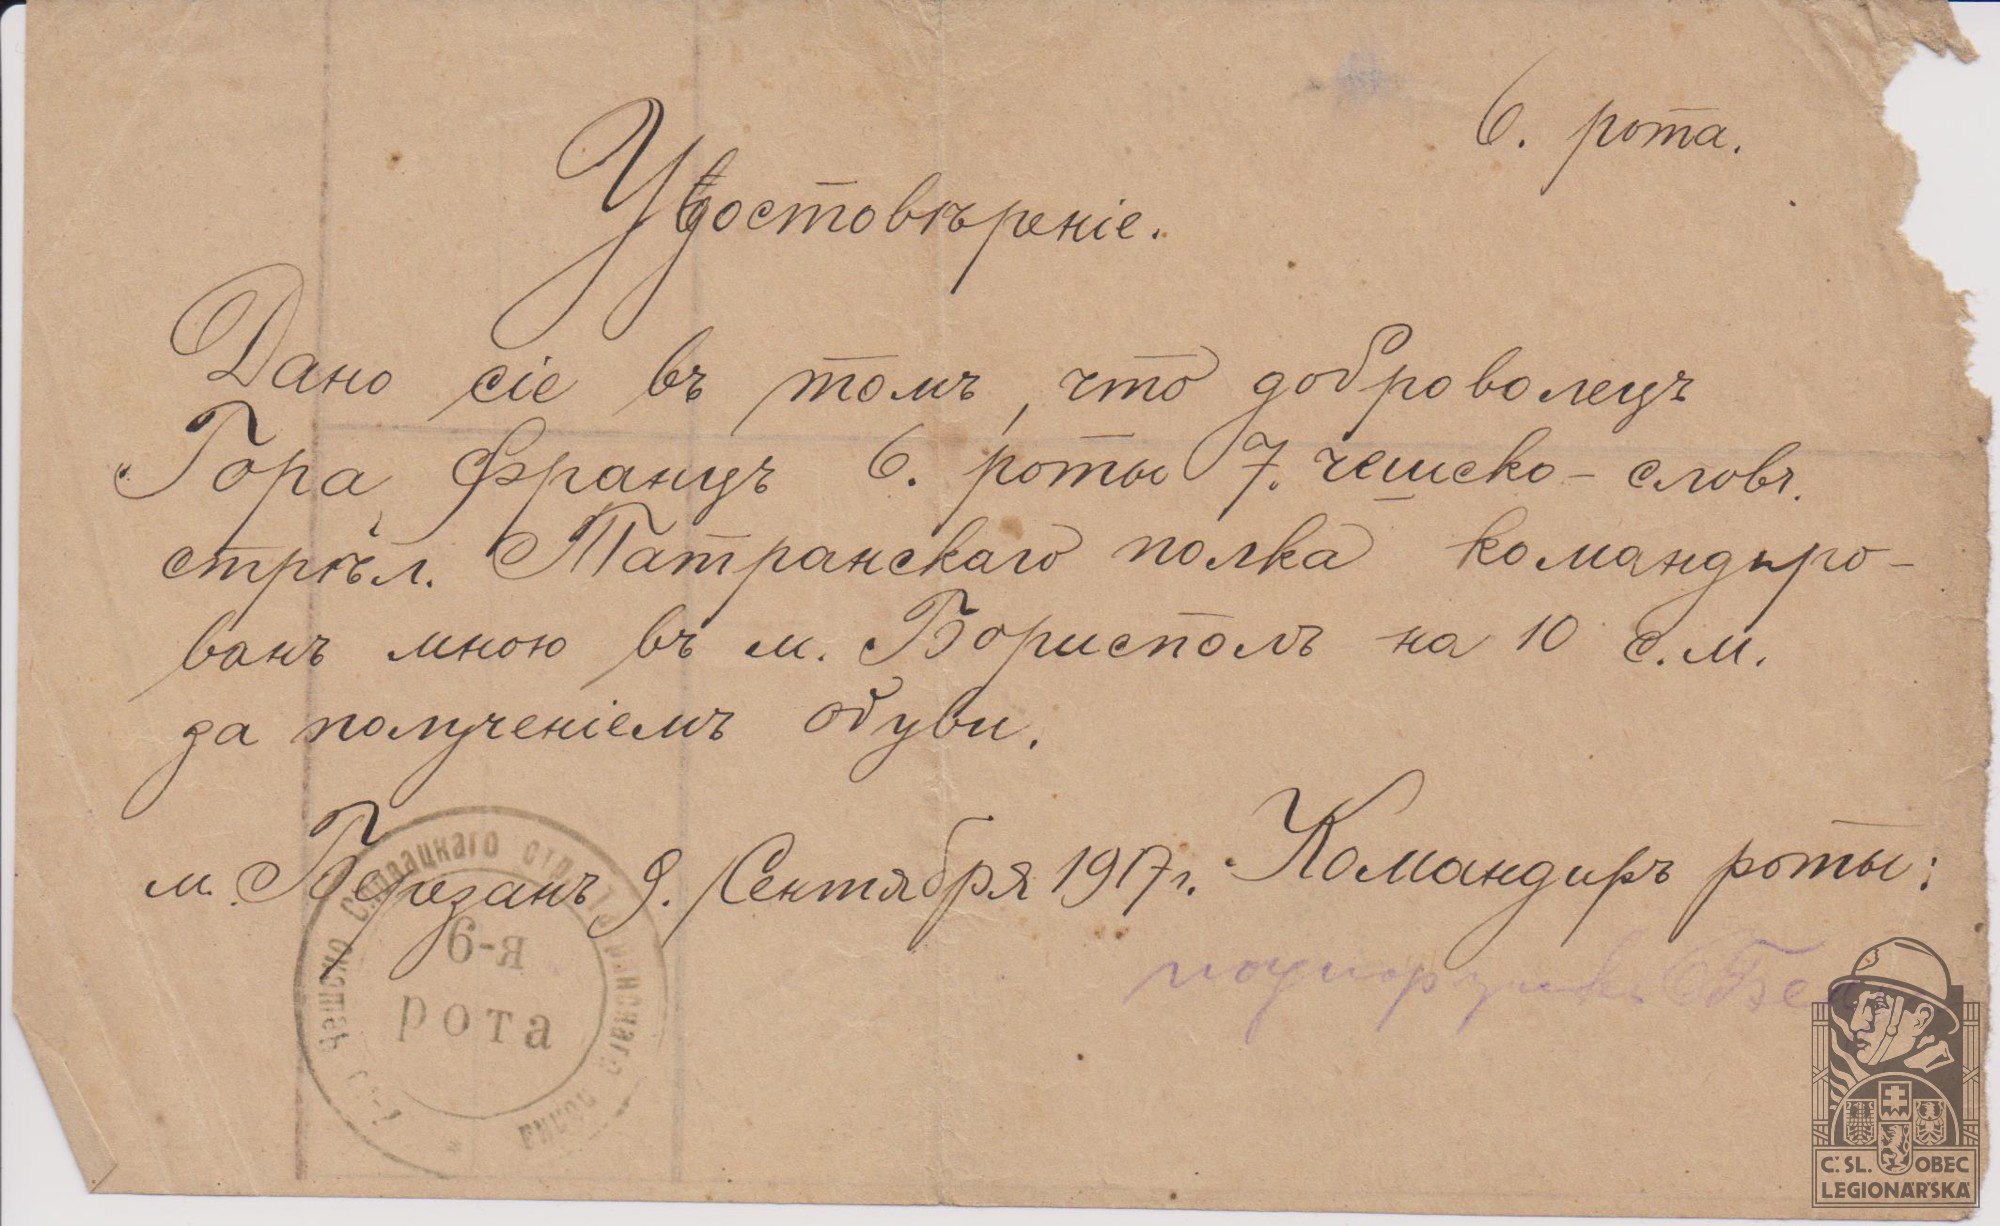 6. рота.
Удостовѣреніе.
Дано сіе въ томъ, что доброволецъ
Гора Францъ 6. роты 7. чешско-словъ.
стрѣл. Татранскаго полка командиро-
ванъ мною въ м. Борисполъ на 10 с.м.
за полученіемъ обуви.
м. Березань 9. Сентября 1917 г. Командиръ роты:
подпоручикъ
7-го Чешско Словацкаго стр. Татранскаго полка
6-я
рота
Č.SL. OBEC
LEGIONÁŘSKÁ